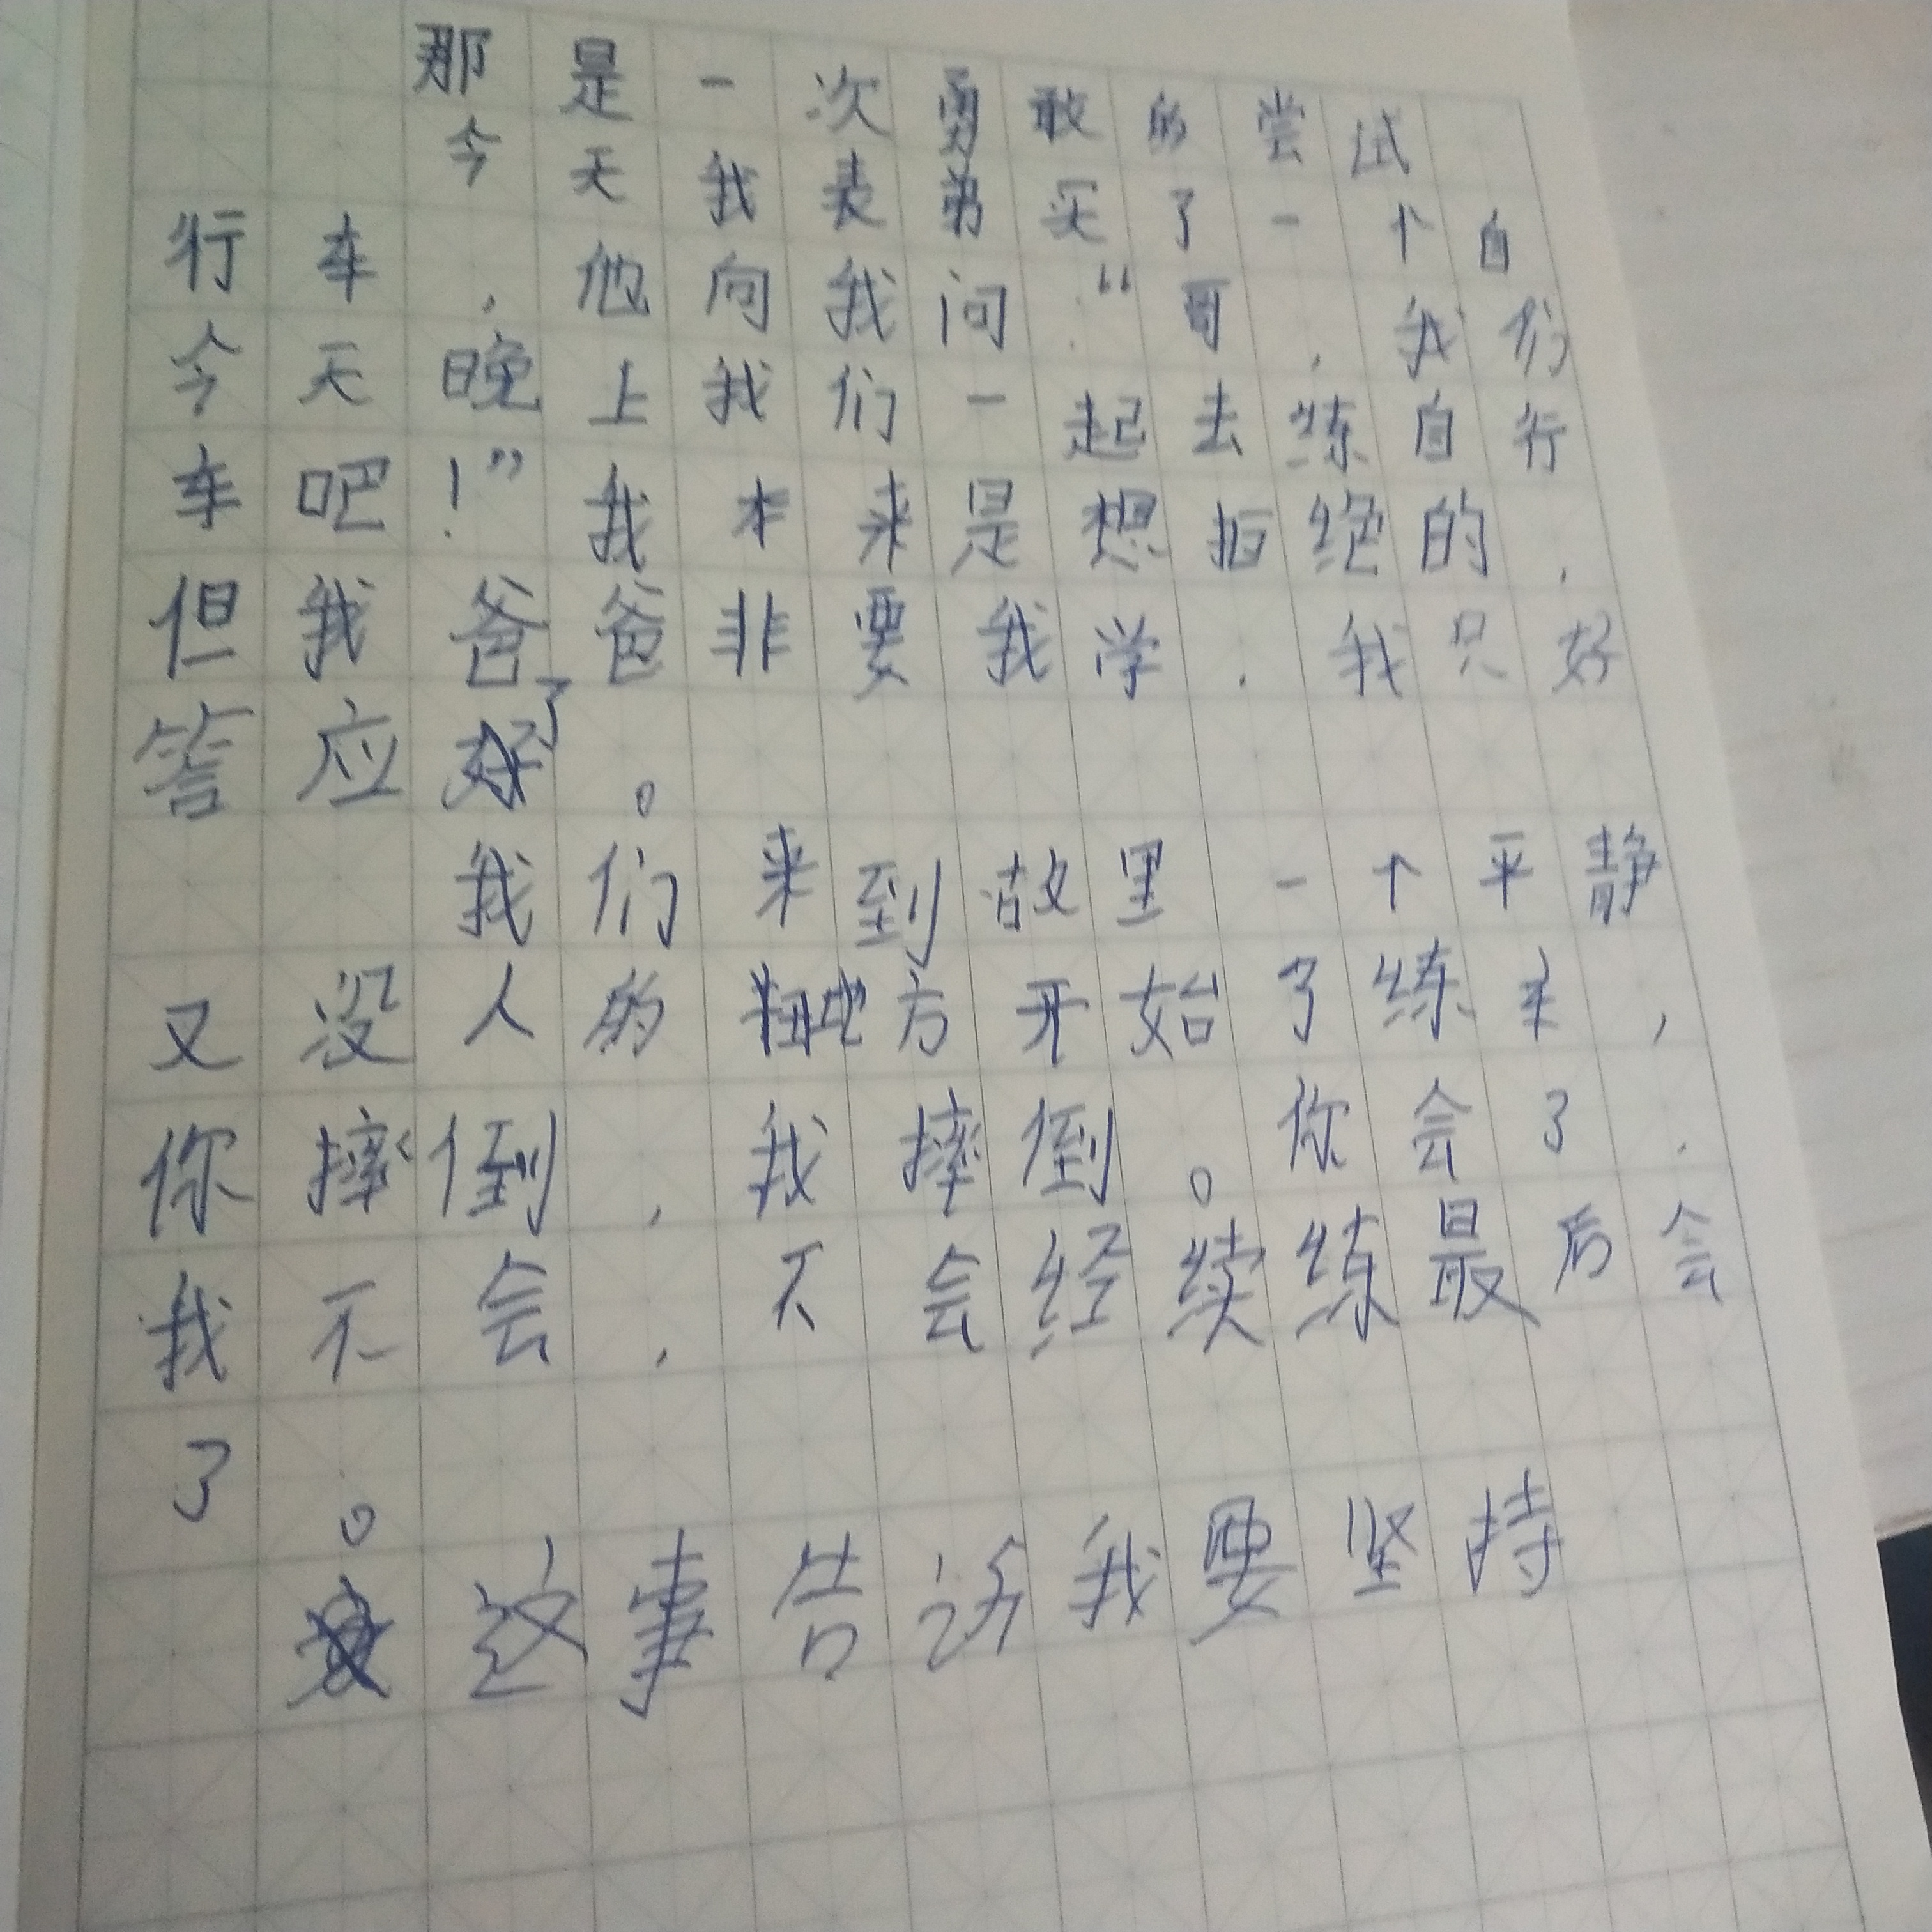 那是一次勇敢的尝试
今天我表弟买了一个自
行车,他向我问."哥,我们
今天晚上我们一起去练自行
车吧!"我本来是想拒绝的,
但我爸爸非要我学.我只好
答应了。
我们来到故里一个平静
又没人的地方开始了练,
你摔倒,我摔倒。你会了.
我不会,不会经续练最后会
了。
这事告诉我要坚持